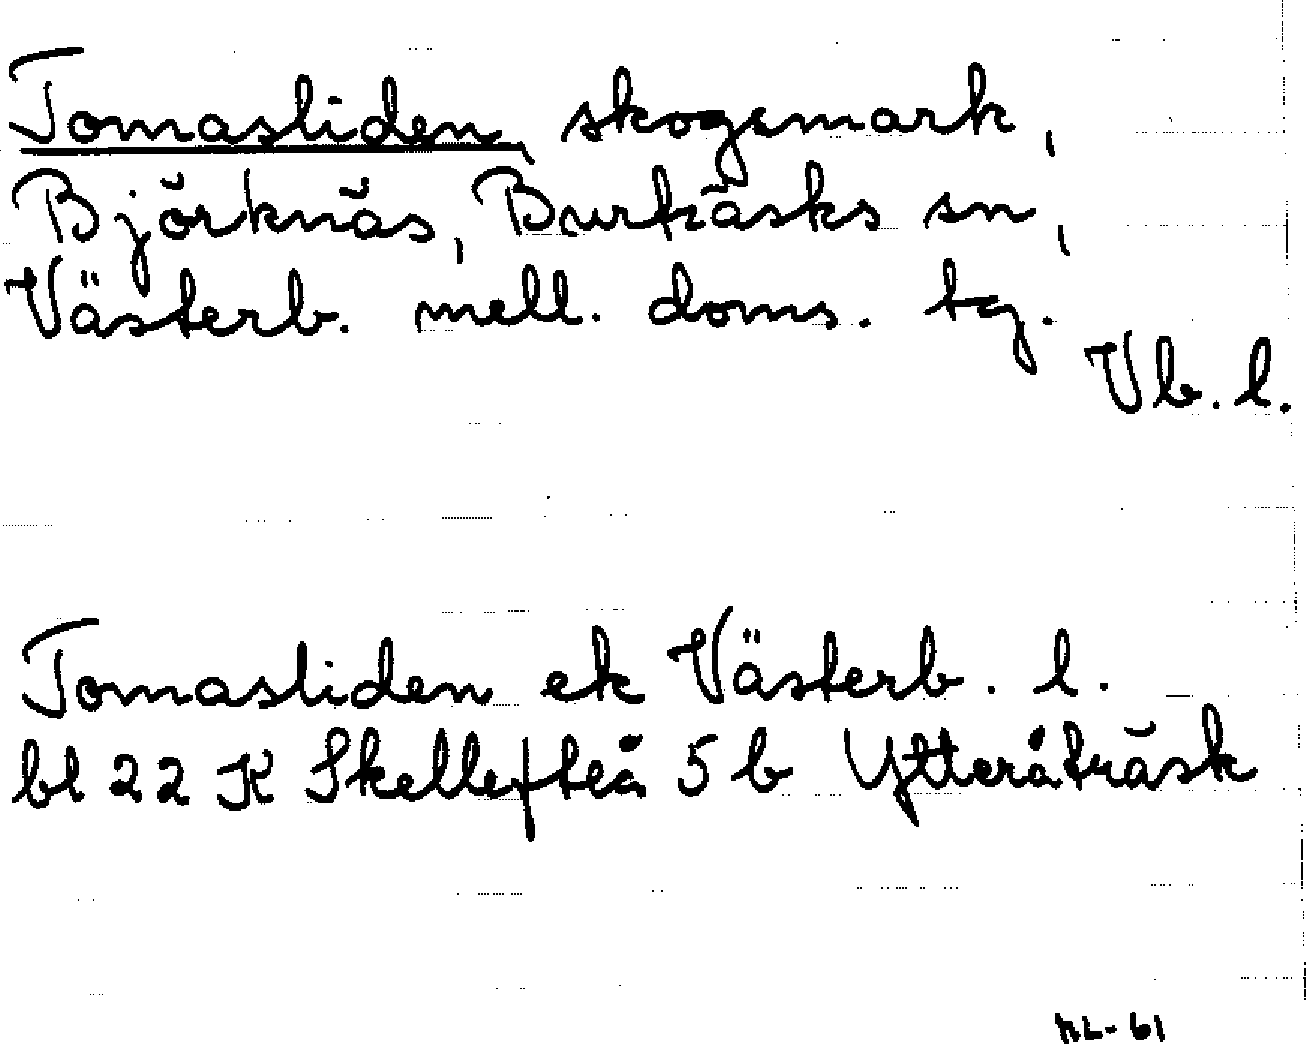 Tomasliden, skogsmark,
Björknäs, Burträsks sn,
Västerb. mell. doms. tg.
Vb. l.
Tomasliden ek Västerb. l.
bl 22 K Skellefteå 5 b Ytteråträsk
NL-61